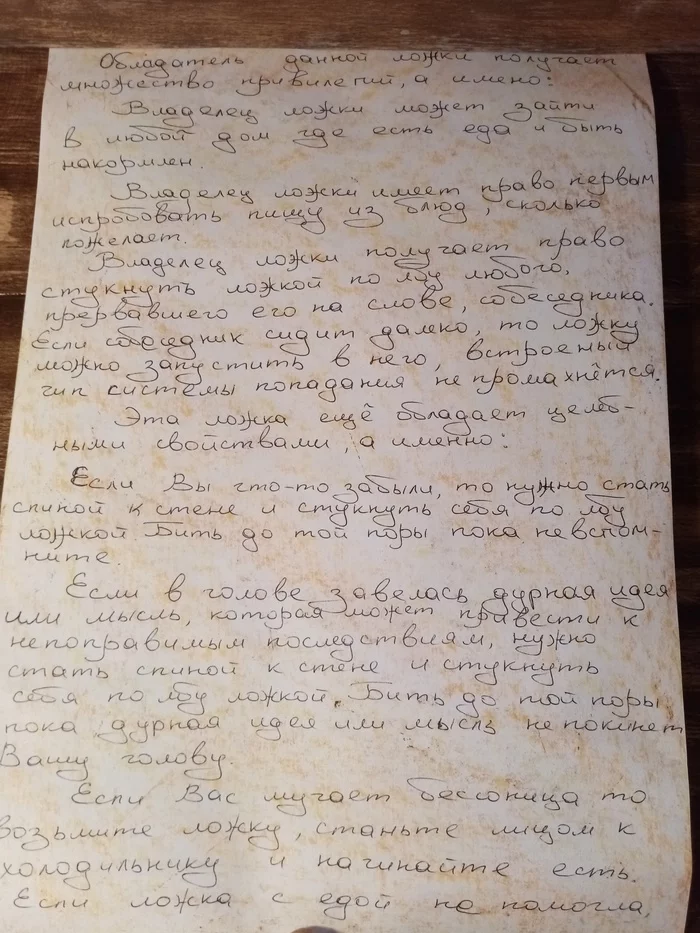 Обладатель данной ложки получает
множество привилегий, а имено:
Владелец ложки может зайти
в любой дом где есть еда и быть
накормлен.
Владелец ложки имеет право первым
испробовать пищу из блюд, сколько
пожелает.
Владелец ложки получает право
стукнуть ложкой по лбу любого,
прервавшего его на слове, собеседника.
Если собеседник сидит далеко, то ложку
можно запустить в него, встроеный
чип системы попадания не промахнётся.
Эта ложка ещё обладает целеб-
ными свойствами, а именно:
Если Вы что-то забыли, то нужно стать
спиной к стене и стукнуть себя по лбу
ложкой. Бить до той поры пока не вспом-
ните.
Если в голове завелась дурная идея
или мысль, которая может привести к
непоправимым последствиям, нужно
стать спиной к стене и стукнуть
себя по лбу ложкой. Бить до той поры
пока дурная идея или мысль не покинет
Вашу голову.
Если Вас мучает бессоница то
возьмите ложку, станьте лицом к
холодильнику и начинайте есть.
Если ложка с едой не помогла,